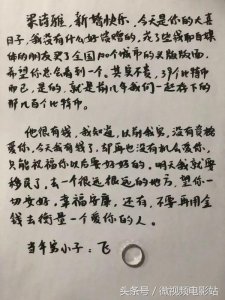 梁诗雅,新婚快乐,今天是你的大喜
日子,我没有什么好馈赠的,花了些钱和自媒
体的朋友买了全国100个城市的头版版面,
希望你总会看到一个。其实不贵,39个比特币
而已,是的,就是前几年我们一起存下的
那几百个比特币。
他很有钱,我知道,以前我穷,没有资格
爱你,今天我有钱了,却再也没有机会爱你,
只能祝福你以后要好好的。明天我就要
移民了,去一个很远很远的地方,望你一
切安好,幸福安康,还有,不要再用金
钱去衡量一个爱你的人。
当年穷小子:飞
头条号/微视频电影站